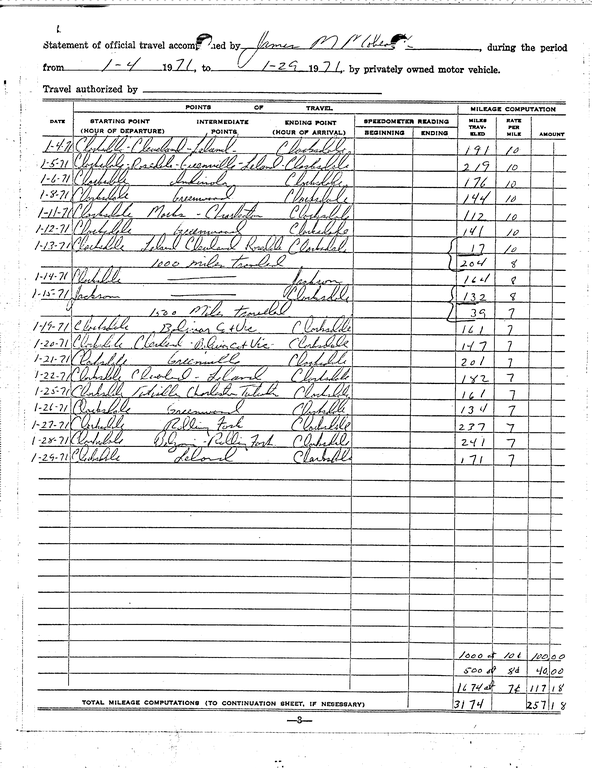 Statement of official travel accompanied by James M Mc, during the period
from 1-4 1971, to 1-29 1971, by privately owned motor vehicle.
Travel authorized by
POINTS OF TRAVEL MILEAGE COMPUTATION
DATE STARTING POINT (HOUR OF DEPARTURE) INTERMEDIATE POINTS ENDING POINT (HOUR OF ARRIVAL) SPEEDOMETER READING BEGINNING ENDING MILES TRAV-ELED RATE PER MILE AMOUNT
1-4-71 Clarksdale - Cleveland - Leland - Clarksdale 191 10
1-5-71 Clarksdale - Rosedale - Greenville - Leland - Clarksdale 219 10
1-6-71 Clarksdale Indianola Clarksdale 176 10
1-8-71 Clarksdale Greenwood Clarksdale 144 10
1-11-71 Clarksdale Marks - Charleston Clarksdale 112 10
1-12-71 Clarksdale Greenwood Clarksdale 141 10
1-13-71 Clarksdale Leland Cleveland Rosedale Clarksdale 17 10
1000 miles traveled 204 8
1-14-71 Clarksdale Jackson 164 8
1-15-71 Jackson Clarksdale 132 8
1500 Miles travelled 39 7
1-19-71 Clarksdale Bolivar Co + Vic Clarksdale 161 7
1-20-71 Clarksdale Cleveland - Bolivar Co + Vic - Clarksdale 147 7
1-21-71 Clarksdale Greenville Clarksdale 201 7
1-22-71 Clarksdale Cleveland - Leland Clarksdale 182 7
1-25-71 Clarksdale Charleston Clarksdale 161 7
1-26-71 Clarksdale Greenwood Clarksdale 134 7
1-27-71 Clarksdale Rolling Fork Clarksdale 237 7
1-28-71 Clarksdale Rolling Fork Clarksdale 241 7
1-29-71 Clarksdale Leland Clarksdale 171 7
1000 at 10¢ 100.00
500 at 8¢ 40.00
1674 at 7¢ 117 18
TOTAL MILEAGE COMPUTATIONS (TO CONTINUATION SHEET, IF NESESSARY) 3174 257 18
—3—